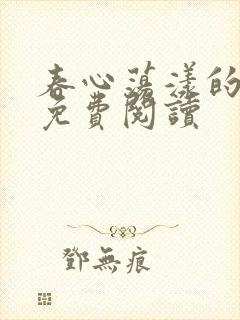 春心荡漾的
免費閱讀
鄧無痕